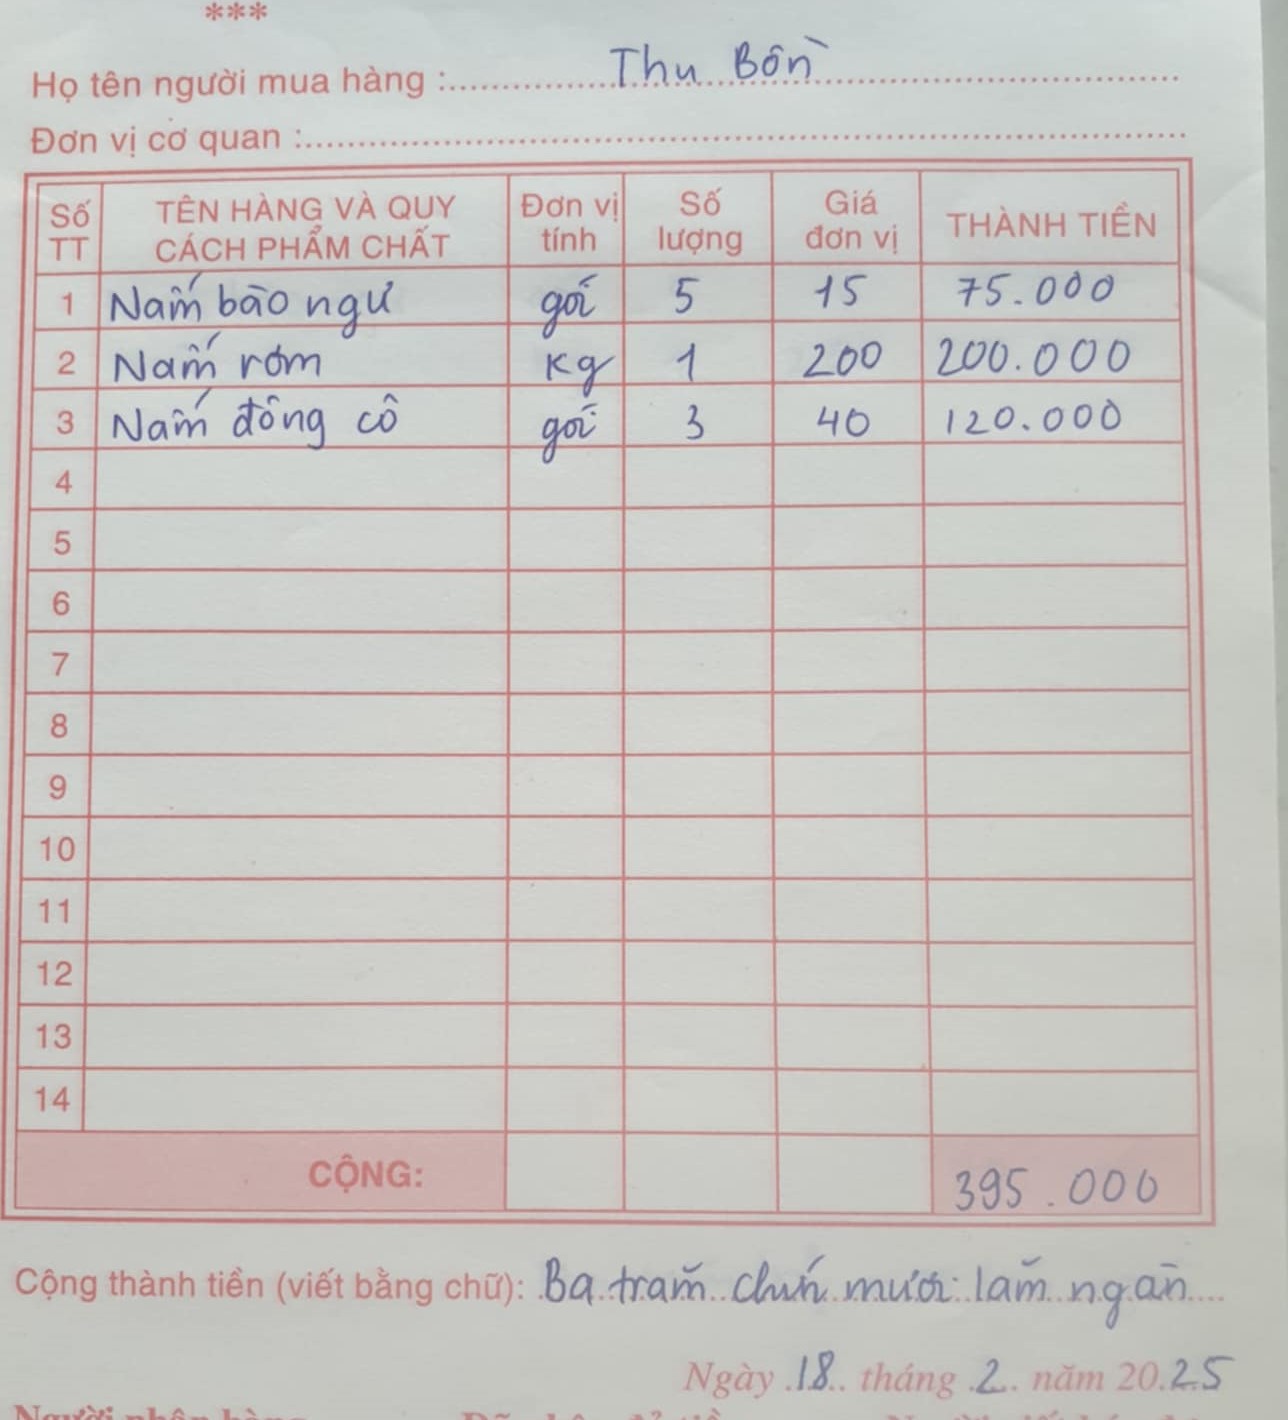 ***
Họ tên người mua hàng : Thu Bồn
Đơn vị cơ quan :
Số TT TÊN HÀNG VÀ QUY CÁCH PHẨM CHẤT Đơn vị tính Số lượng Giá đơn vị THÀNH TIỀN
1 Nấm bào ngư gói 5 15 75.000
2 Nấm rơm Kg 1 200 200.000
3 Nấm đông cô gói 3 40 120.000
4
5
6
7
8
9
10
11
12
13
14
CỘNG: 395.000
Cộng thành tiền (viết bằng chữ): Ba trăm chín mươi lăm ngàn
Ngày 18 tháng 2 năm 2025
Người nhận hàng